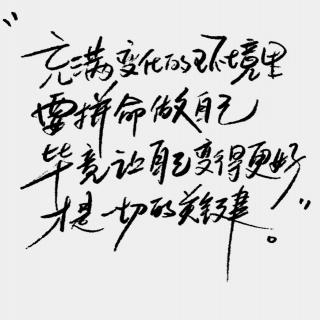 “充满变化的环境里
要拼命做自己
毕竟让自己变得更好
才是一切的关键。”